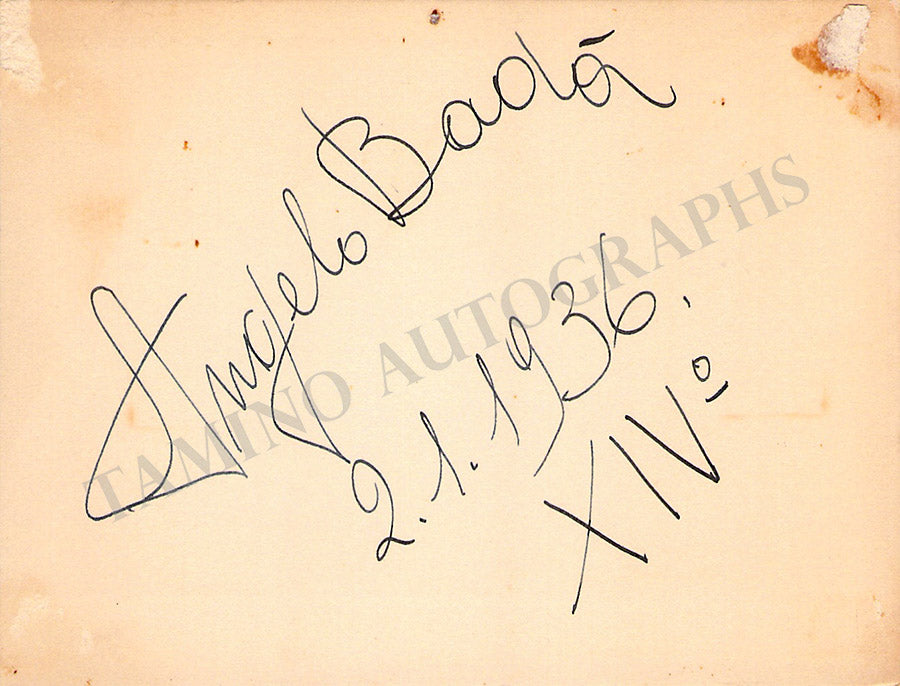 Angelo Badà
2.1.1936.
XIVº
TAMINO AUTOGRAPHS